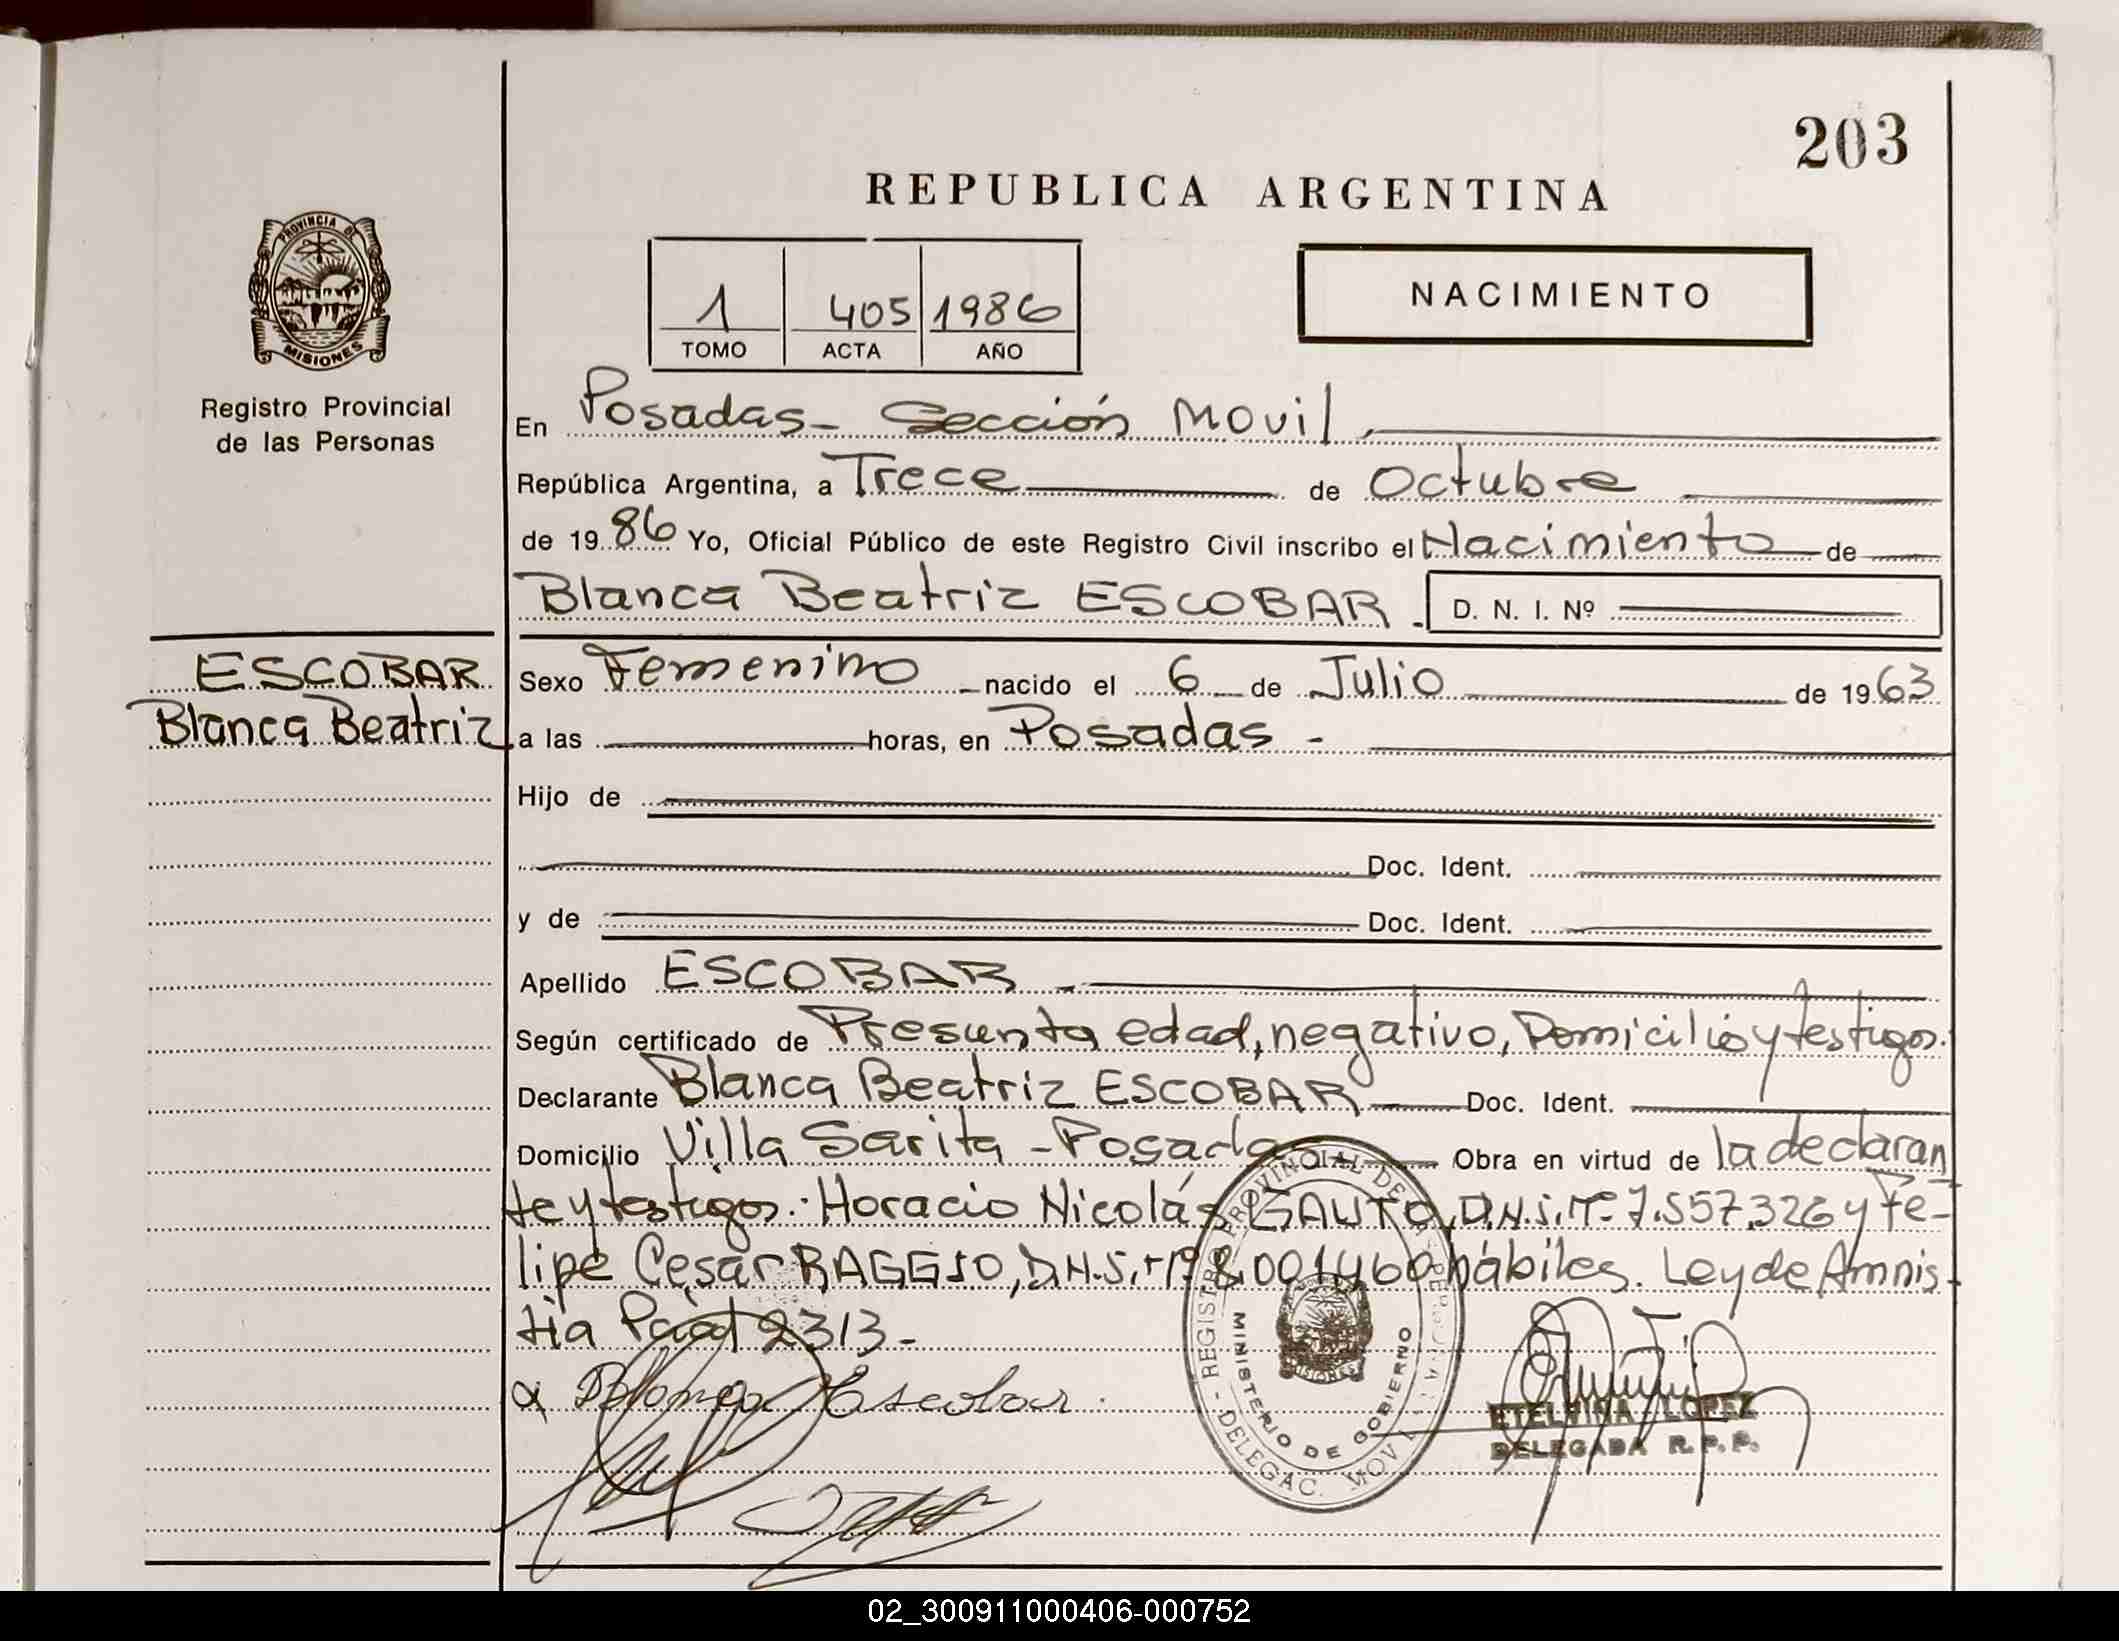 203
REPUBLICA ARGENTINA
PROVINCIA DE
MISIONES
Registro Provincial
de las Personas
1 405 1986
TOMO ACTA AÑO
NACIMIENTO
En Posadas - Sección Movil,
República Argentina, a Trece de Octubre
de 1986 Yo, Oficial Público de este Registro Civil inscribo el Nacimiento de
Blanca Beatriz ESCOBAR. D. N. I. Nº
ESCOBAR
Blanca Beatriz
Sexo Femenino nacido el 6 de Julio de 1963
a las horas, en Posadas -
Hijo de
Doc. Ident.
y de Doc. Ident.
Apellido ESCOBAR.
Según certificado de Presunta edad, negativo, Domicilio y testigos.
Declarante Blanca Beatriz ESCOBAR Doc. Ident.
Domicilio Villa Sarita - Posadas Obra en virtud de la declaran
te y testigos: Horacio Nicolás GAUTO, D.N.I. Nº 7.557.326 y Fe-
lipe Cesar RAGGIO, D.N.I. Nº 8.001460 hábiles. Ley de Amnis
tia 2313 -
Blanca Escobar.
REGISTRO PROVINCIAL DE LAS PERSONAS - DELEGAC. MOVIL
MINISTERIO DE GOBIERNO
MISIONES
ETELVINA LOPEZ
DELEGADA R.P.P.
02_300911000406-000752